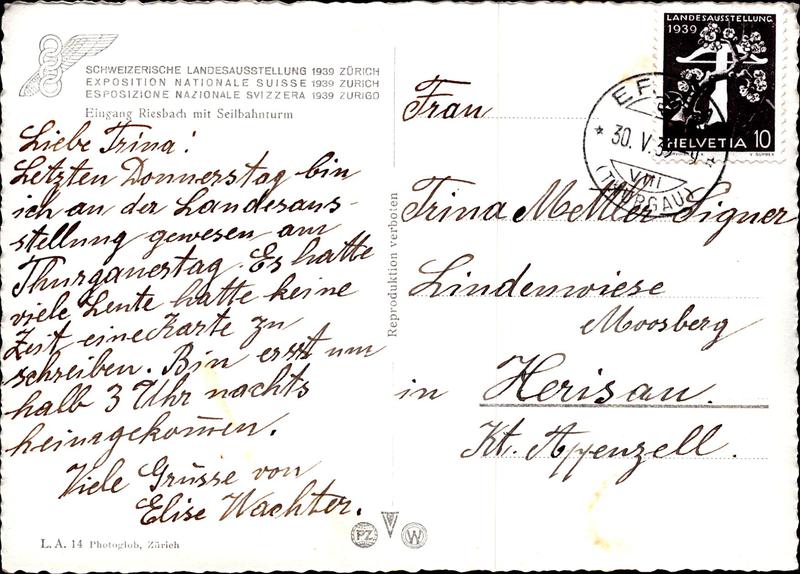 SCHWEIZERISCHE LANDESAUSSTELLUNG 1939 ZÜRICH
EXPOSITION NATIONALE SUISSE 1939 ZURICH
ESPOSIZIONE NAZIONALE SVIZZERA 1939 ZURIGO
Eingang Riesbach mit Seilbahnturm
Liebe Trina!
Letzten Donnerstag bin
ich an der Landesaus-
stellung gewesen am
Thurgauerstag. Es hatte
viele Leute hatte keine
Zeit eine Karte zu
schreiben. Bin erst um
halb 3 Uhr nachts
heimgekommen.
Viele Grüsse von
Elise Wachter.
L. A. 14 Photoglob, Zürich
Reproduktion verboten
PZ
W
LANDESAUSSTELLUNG
1939
HELVETIA 10
30. V. 39
VIII
(THURGAU)
Frau
Trina Mettler-Signer
Lindenwiese
Moosberg
in Herisau.
Kt. Appenzell.